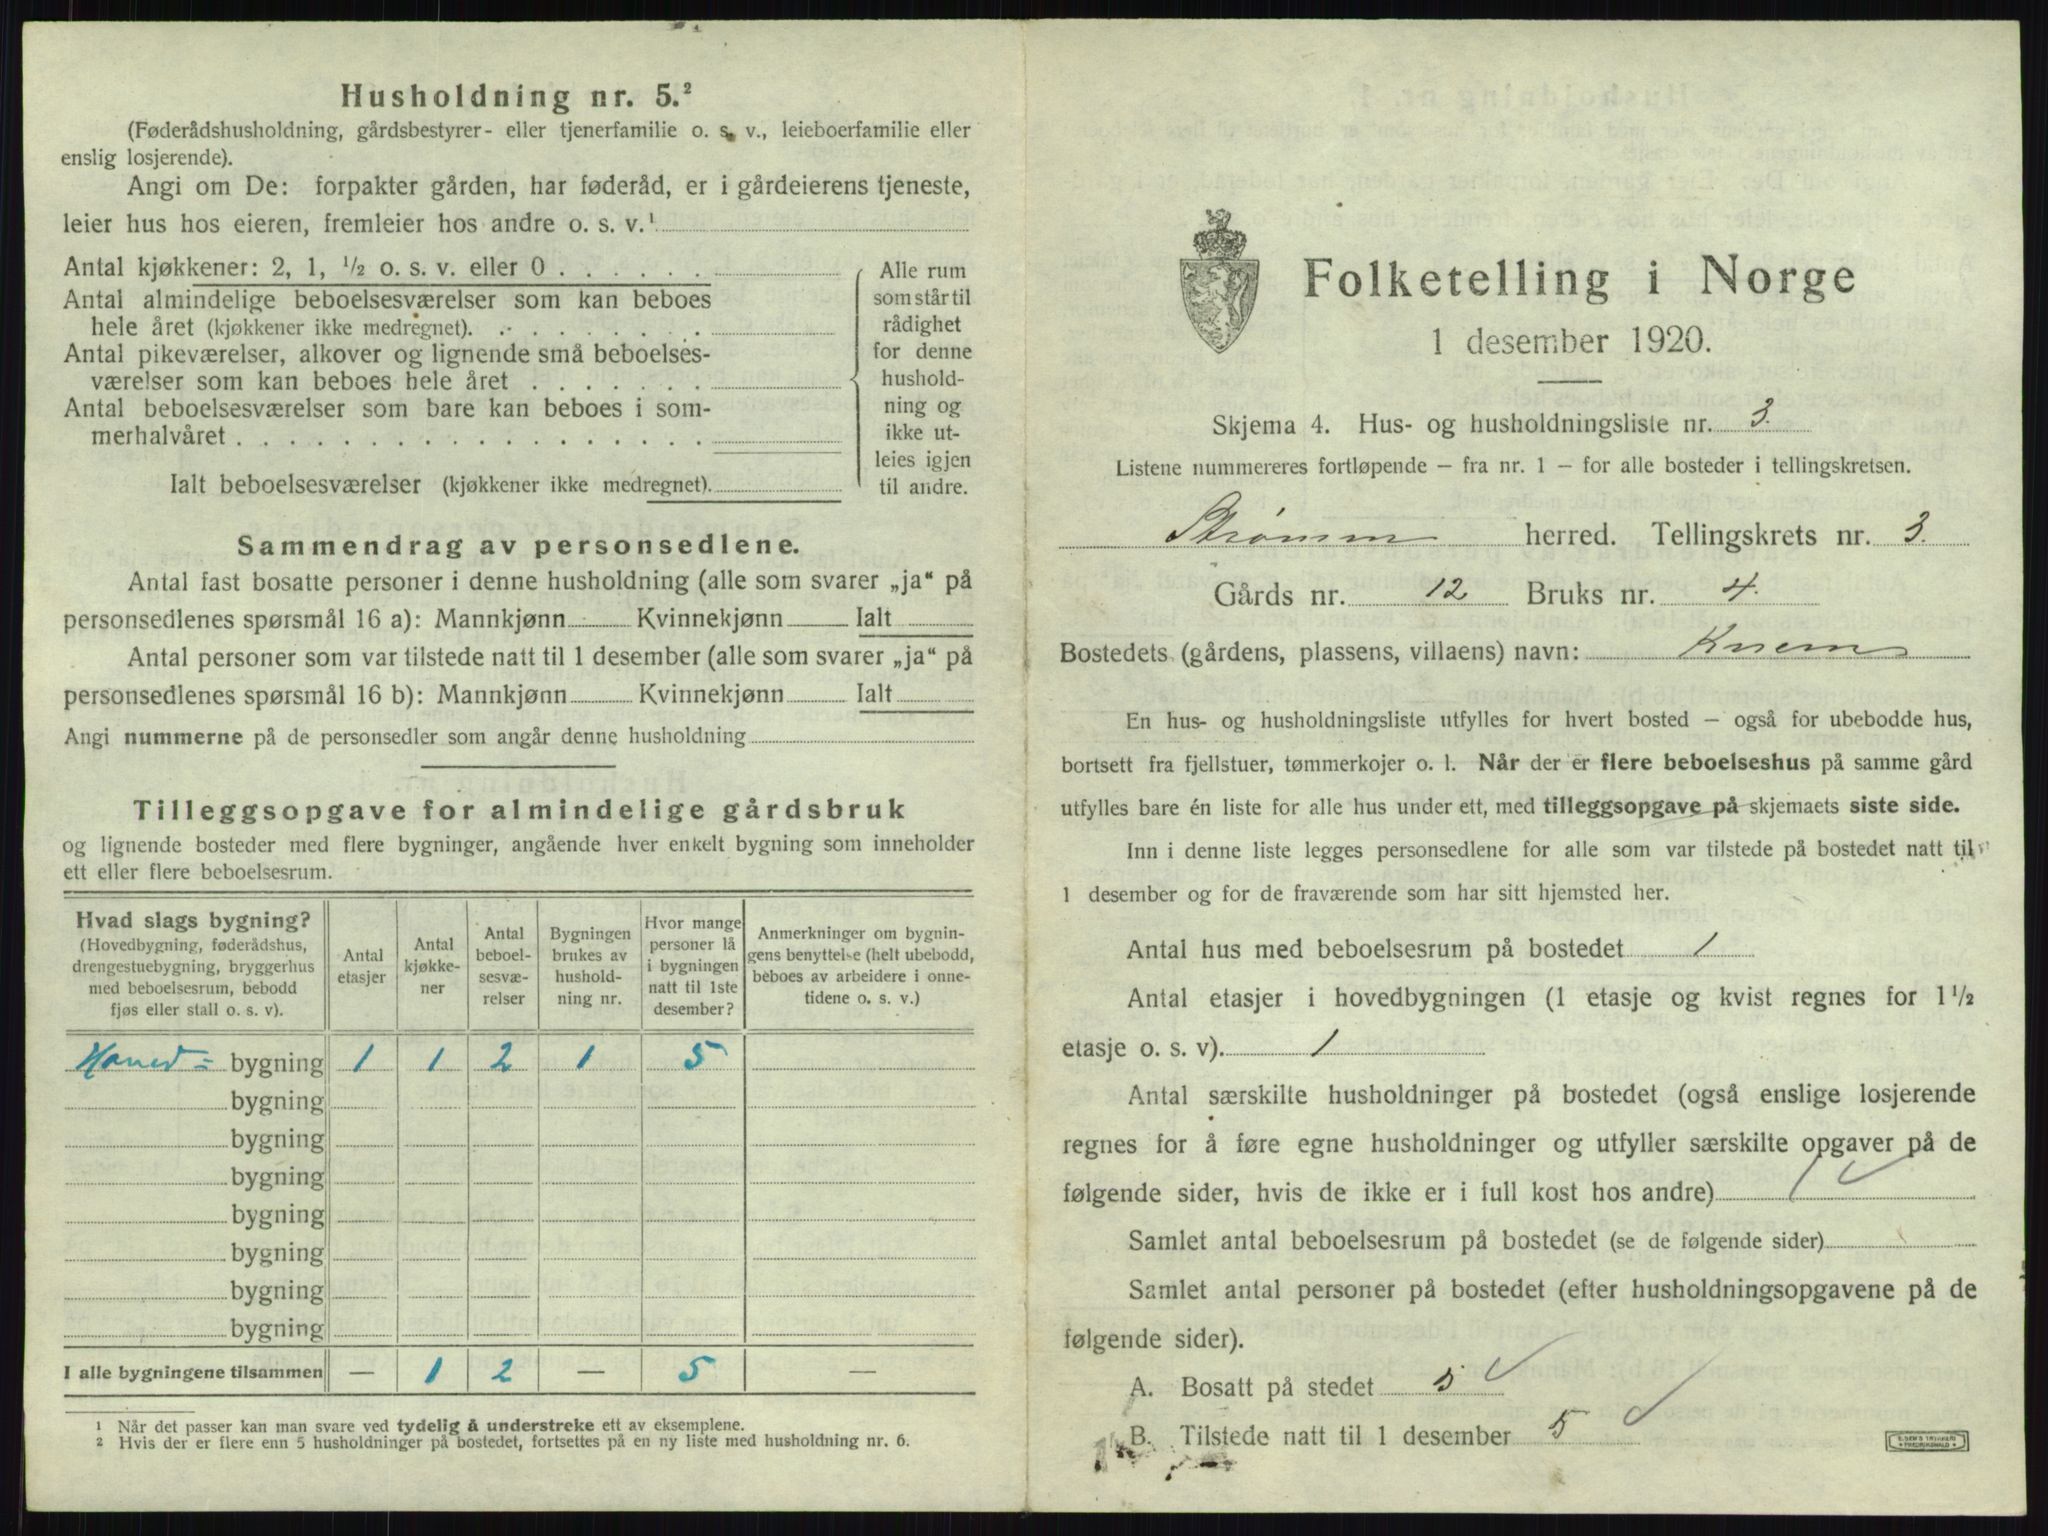 Husholdning nr. 5.²
(Føderådshusholdning, gårdsbestyrer- eller tjenerfamilie o. s. v., leieboerfamilie eller
enslig losjerende).
Angi om De: forpakter gården, har føderåd, er i gårdeierens tjeneste,
leier hus hos eieren, fremleier hos andre o. s. v.¹
Antal kjøkkener: 2, 1, ½ o. s. v. eller 0 . . . . . .
Antal almindelige beboelsesværelser som kan beboes
hele året (kjøkkener ikke medregnet). . . . . . . . .
Antal pikeværelser, alkover og lignende små beboelses-
værelser som kan beboes hele året . . . . . . .
Antal beboelsesværelser som bare kan beboes i som-
merhalvåret . . . . . . . . . . . . . . . . . .
Ialt beboelsesværelser (kjøkkener ikke medregnet).
Alle rum
som står til
rådighet
for denne
hushold-
ning og
ikke ut-
leies igjen
til andre.
Sammendrag av personsedlene.
Antal fast bosatte personer i denne husholdning (alle som svarer „ja“ på
personsedlenes spørsmål 16 a): Mannkjønn Kvinnekjønn Ialt
Antal personer som var tilstede natt til 1 desember (alle som svarer „ja“ på
personsedlenes spørsmål 16 b): Mannkjønn Kvinnekjønn Ialt
Angi nummerne på de personsedler som angår denne husholdning
Tilleggsopgave for almindelige gårdsbruk
og lignende bosteder med flere bygninger, angående hver enkelt bygning som inneholder
ett eller flere beboelsesrum.
Hvad slags bygning?
(Hovedbygning, føderådshus,
drengestuebygning, bryggerhus
med beboelsesrum, bebodd
fjøs eller stall o. s. v).
Antal
etasjer
Antal
kjøkke-
ner
Antal
beboel-
sesvæ-
relser
Bygningen
brukes av
hushold-
ning nr.
Hvor mange
personer lå
i bygningen
natt til 1ste
desember?
Anmerkninger om bygnin-
gens benyttelse (helt ubebodd,
beboes av arbeidere i onne-
tidene o. s. v.)
Hoved= bygning 1 1 2 1 5
bygning
bygning
bygning
bygning
bygning
bygning
bygning
I alle bygningene tilsammen — 1 2 — 5 —
¹ Når det passer kan man svare ved tydelig å understreke ett av eksemplene.
² Hvis der er flere enn 5 husholdninger på bostedet, fortsettes på en ny liste med husholdning nr. 6.
Folketelling i Norge
1 desember 1920.
Skjema 4. Hus- og husholdningsliste nr. 3.
Listene nummereres fortløpende – fra nr. 1 – for alle bosteder i tellingskretsen.
Strømm herred. Tellingskrets nr. 3.
Gårds nr. 12 Bruks nr. 4.
Bostedets (gårdens, plassens, villaens) navn: Knem
En hus- og husholdningsliste utfylles for hvert bosted – også for ubebodde hus,
bortsett fra fjellstuer, tømmerkojer o. l. Når der er flere beboelseshus på samme gård
utfylles bare én liste for alle hus under ett, med tilleggsopgave på skjemaets siste side.
Inn i denne liste legges personsedlene for alle som var tilstede på bostedet natt til
1 desember og for de fraværende som har sitt hjemsted her.
Antal hus med beboelsesrum på bostedet 1
Antal etasjer i hovedbygningen (1 etasje og kvist regnes for 1½
etasje o. s. v). 1
Antal særskilte husholdninger på bostedet (også enslige losjerende
regnes for å føre egne husholdninger og utfyller særskilte opgaver på de
følgende sider, hvis de ikke er i full kost hos andre) 1 ✓
Samlet antal beboelsesrum på bostedet (se de følgende sider)
Samlet antal personer på bostedet (efter husholdningsopgavene på de
følgende sider).
A. Bosatt på stedet 5 ✓
B. Tilstede natt til 1 desember 5 ✓